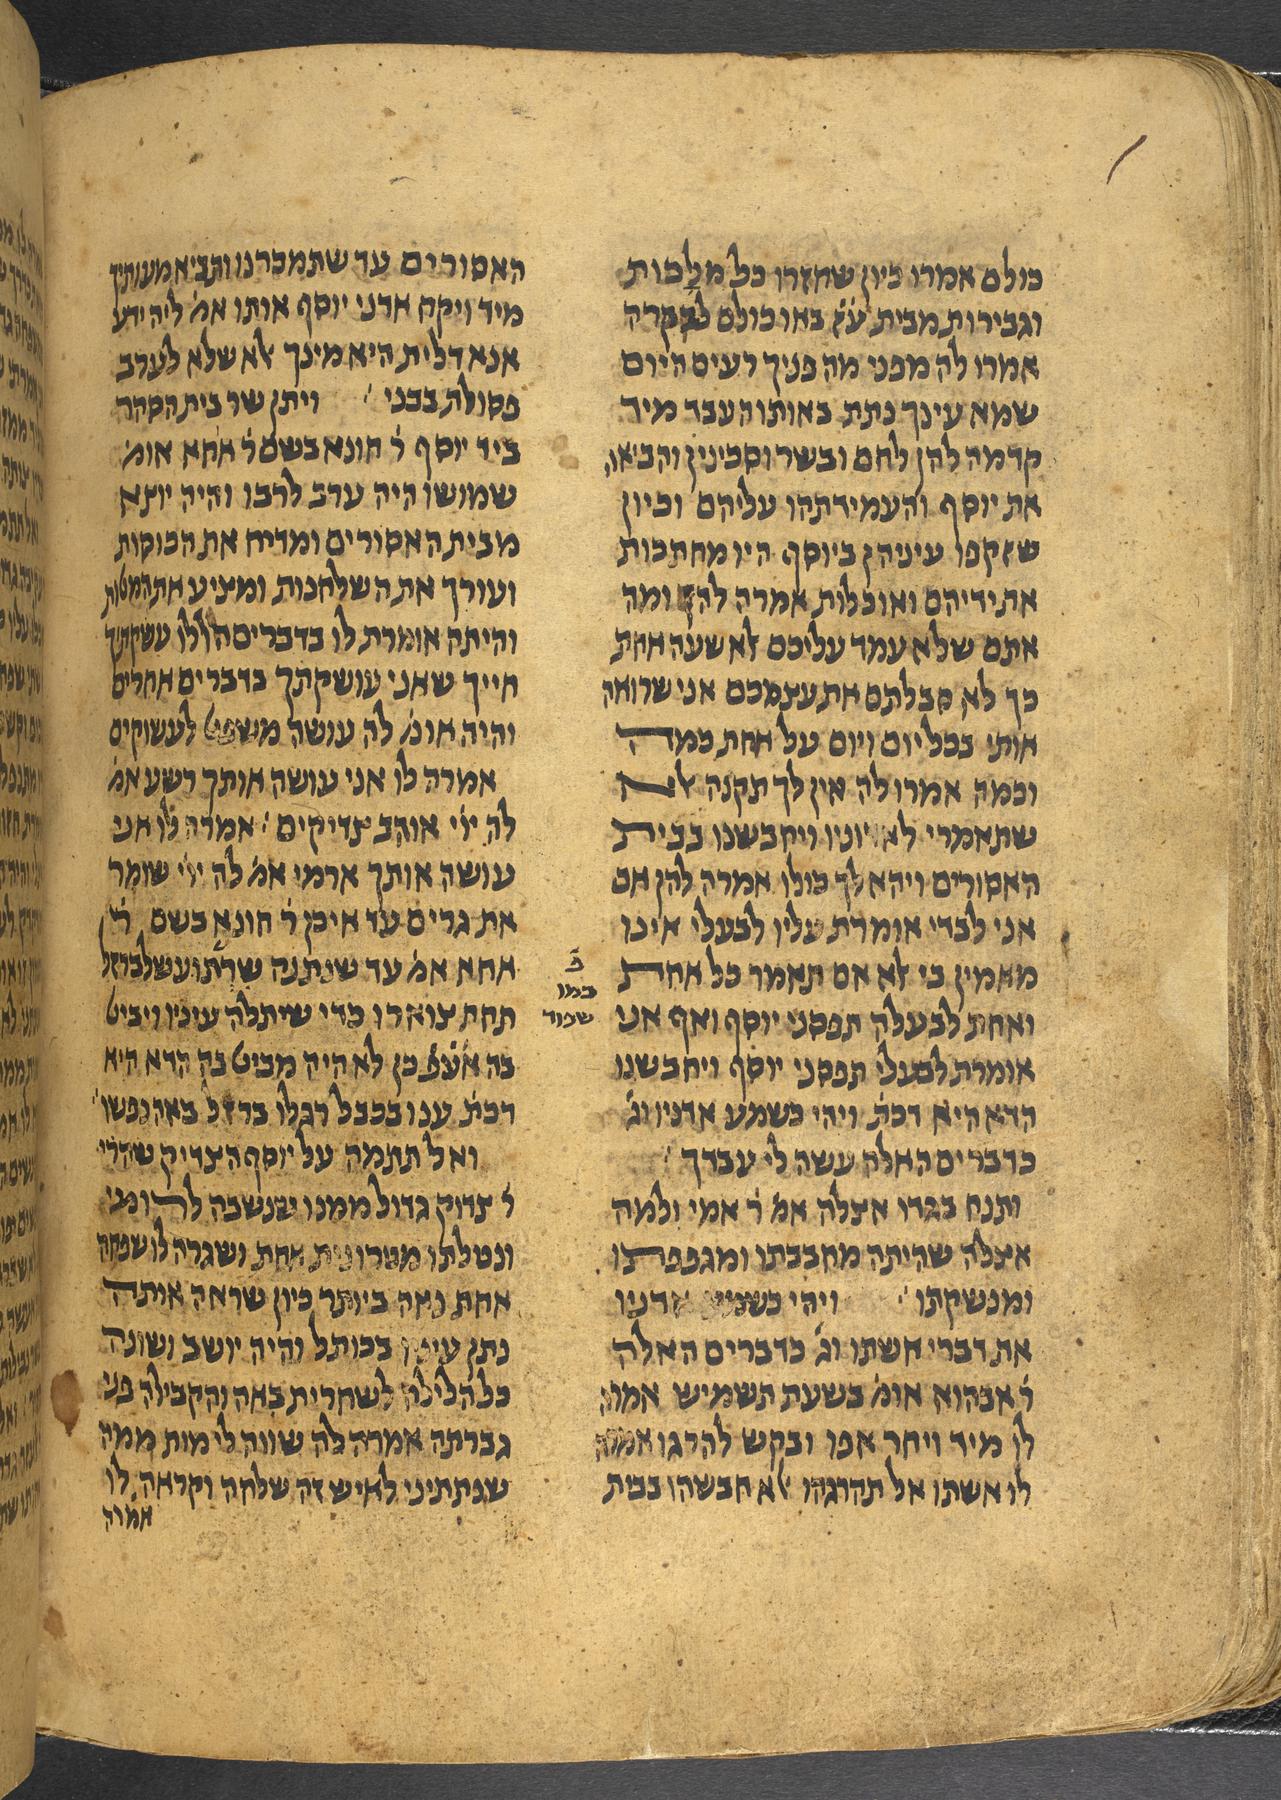 כולם אמרו כיון שחזרו כל מלכות
וגבירות מבית ע׳ז באו כולם לבקרה
אמרו לה מפני מה פניך רעים היום
שמא עינך נתת באותו העבד מיד
קדמה להן לחם ובשר וסכינין והביאה
את יוסף והעמידתהו עליהם וכיון
שזקפו עיניהן ביוסף היו מחתכות
את ידיהם ואוכלות אמרה להן ומה
אתם שלא עמד עליכם אלא שעה אחת
כך לא סבלתם את עצמכם אני שרואה
אותי בכל יום ויום על אחת כמה
וכמה אמרו לה אין לך תקנה אלא
שתאמרי ויחבשנו בבית
האסורים ויהא לך כולו אמרה להן אם
אני לבדי אומרת עליו לבעלי אינו
מאמין בי אלא אם תאמר כל אחת
ואחת לבעלה תפסני יוסף ואף אני
אומרת לבעלי תפסני יוסף ויחבשנו
הדא היא דכת׳ ויהי כשמע אדניו וג׳
כדברים האלה עשה לי עבדך׃
ותנח בגדו אצלה אמ׳ ר׳ אמי ולמה
אצלה שהיתה מחבבתו ומגפפתו
ומנשקתו׃ ויהי כשמע אדניו
את דברי אשתו וג׳ כדברים האלה
ר׳ אבהוא אומ׳ בשעת תשמיש אמרה
לו מיד ויחר אפו ובקש להרגו אמרה
לו אשתו אל תהרגהו אלא חבשהו בבית
האסורים עד שתמכרנו ותביא מעותיך
מיד ויקח אדני יוסף אותו אמ׳ ליה ידע
אנא דלית היא מינך אלא שלא לערב
פסולת בבני׃ ויתן שר בית הסהר
ביד יוסף ר׳ חונא בשם ר׳ אחא אומ׳
שמושו היה ערב לרבו והיה יוצא
מבית האסורים ומדיח את הכוסות
ועורך את השלחנות ומציע את המטות
והיתה אומרת לו בדברים הללו עשקתיך
חייך שאני עושקתך בדברים אחרים
והיה אומ׳ לה עושה משפט לעשוקים
אמרה לו אני עושה אותך רשע אמ׳
לה יי׳ אוהב צדיקים׃ אמרה לו אני
עושה אותך ארמי אמ׳ לה יי׳ שומר
את גרים עד איכן ר׳ חונא בשם ר׳
אחא אמ׳ עד שנתנה שרתוע של ברזל
פ׳
כמו
שפוד
תחת צוארו כדי שיתלה עיניו ויביט
בה אע׳פ׳ כן לא היה מביט בה הדא היא
דכת׳ ענו בכבל רגלו ברזל באה נפשו׃
ואל תתמה על יוסף הצדיק שהרי
ר׳ צדוק גדול ממנו שנשבה לרומי
ונטלתו מטרונית אחת ושגרה לו שפחה
אחת נאה ביותר כיון שראה אותה
נתן עיניו בכותל והיה יושב ושונה
כל הלילה לשחרית באה והקבילה פני
גברתה אמרה לה שווה לי מות ממה
שנתתיני לאיש זה שלחה וקראה לו
אמרה